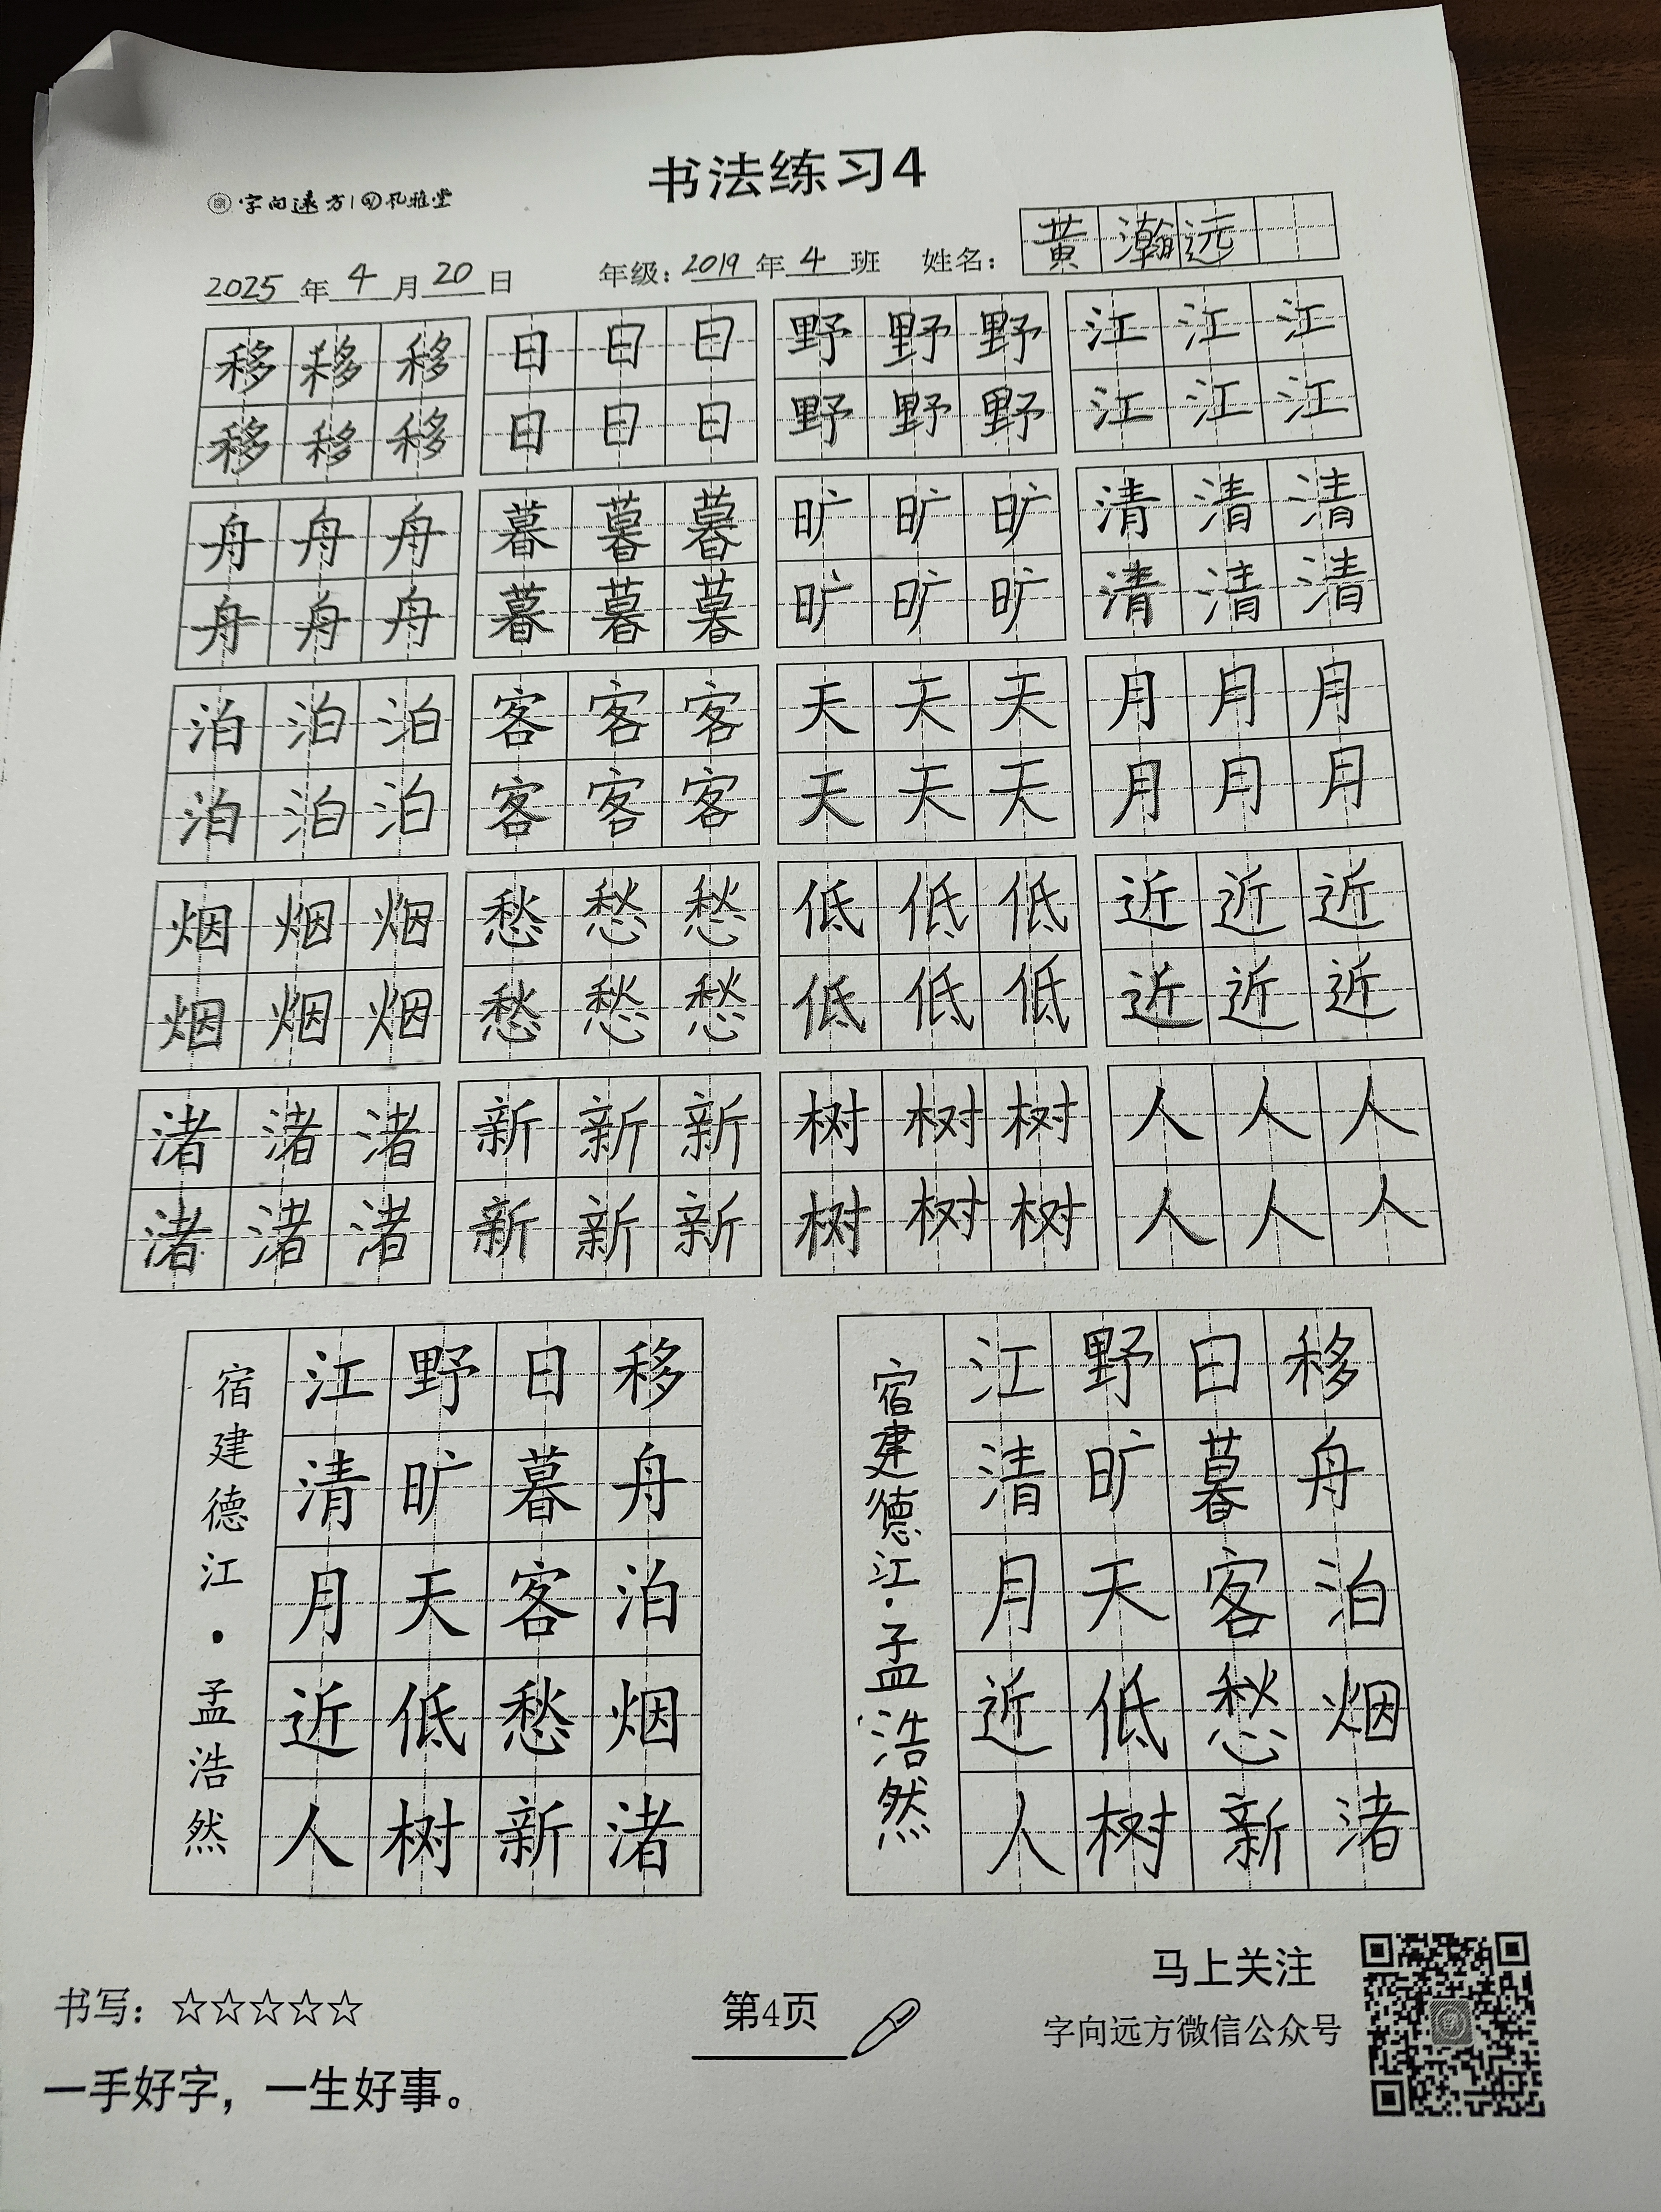 书法练习4
字向远方|孔雅堂
2025年4月20日 年级：2019年4班 姓名：黄瀚远
移移移 日日日 野野野 江江江
移移移 日日日 野野野 江江江
舟舟舟 暮暮暮 旷旷旷 清清清
舟舟舟 暮暮暮 旷旷旷 清清清
泊泊泊 客客客 天天天 月月月
泊泊泊 客客客 天天天 月月月
烟烟烟 愁愁愁 低低低 近近近
烟烟烟 愁愁愁 低低低 近近近
渚渚渚 新新新 树树树 人人人
渚渚渚 新新新 树树树 人人人
移舟泊烟渚
日暮客愁新
野旷天低树
江清月近人
宿建德江·孟浩然
移舟泊烟渚
日暮客愁新
野旷天低树
江清月近人
宿建德江·孟浩然
书写：☆☆☆☆☆
一手好字，一生好事。
第4页
马上关注
字向远方微信公众号